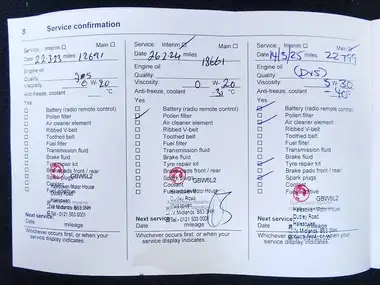 8 Service confirmation
Service: Interim Main
Date 22.3.23 miles 12691
Engine oil
Quality:
Viscosity: 0 W- 20
Anti-freeze, coolant °C
Yes
Battery (radio remote control)
Pollen filter
Air cleaner element
Ribbed V-belt
Toothed belt
Fuel filter
Transmission fluid
Brake fluid
Tyre repair kit
Brake pads front / rear
Spark plugs
Coolant
GBW9L2
Halesowen Motor House
Dudley Road
Halesowen
W Midlands B63 3NH
Tel - 0121 503 0001
Next service:
Date mileage
Whichever occurs first, or when your
service display indicates.
Service: Interim Main
Date 26.2.24 miles 18661
Engine oil
Quality:
Viscosity: 0 W- 20
Anti-freeze, coolant -31 °C
Yes
Battery (radio remote control)
Pollen filter
Air cleaner element
Ribbed V-belt
Toothed belt
Fuel filter
Transmission fluid
Brake fluid
Tyre repair kit
Brake pads front / rear
Spark plugs
Coolant
GBW9L2
Halesowen Motor House
Dudley Road
Halesowen
W Midlands B63 3NH
Tel - 0121 503 0001
Next service:
Date mileage
Whichever occurs first, or when your
service display indicates.
Service: Interim Main
Date 14/3/25 miles 22799
Engine oil
Quality: (DVS)
Viscosity: 5 W- 30
Anti-freeze, coolant -40 °C
Yes
Battery (radio remote control)
Pollen filter
Air cleaner element
Ribbed V-belt
Toothed belt
Fuel filter
Transmission fluid
Brake fluid
Tyre repair kit
Brake pads front / rear
Spark plugs
Coolant
GBW9L2
Halesowen Motor House
Dudley Road
Halesowen
W Midlands B63 3NH
Tel - 0121 503 0001
Next service:
Date mileage
Whichever occurs first, or when your
service display indicates.